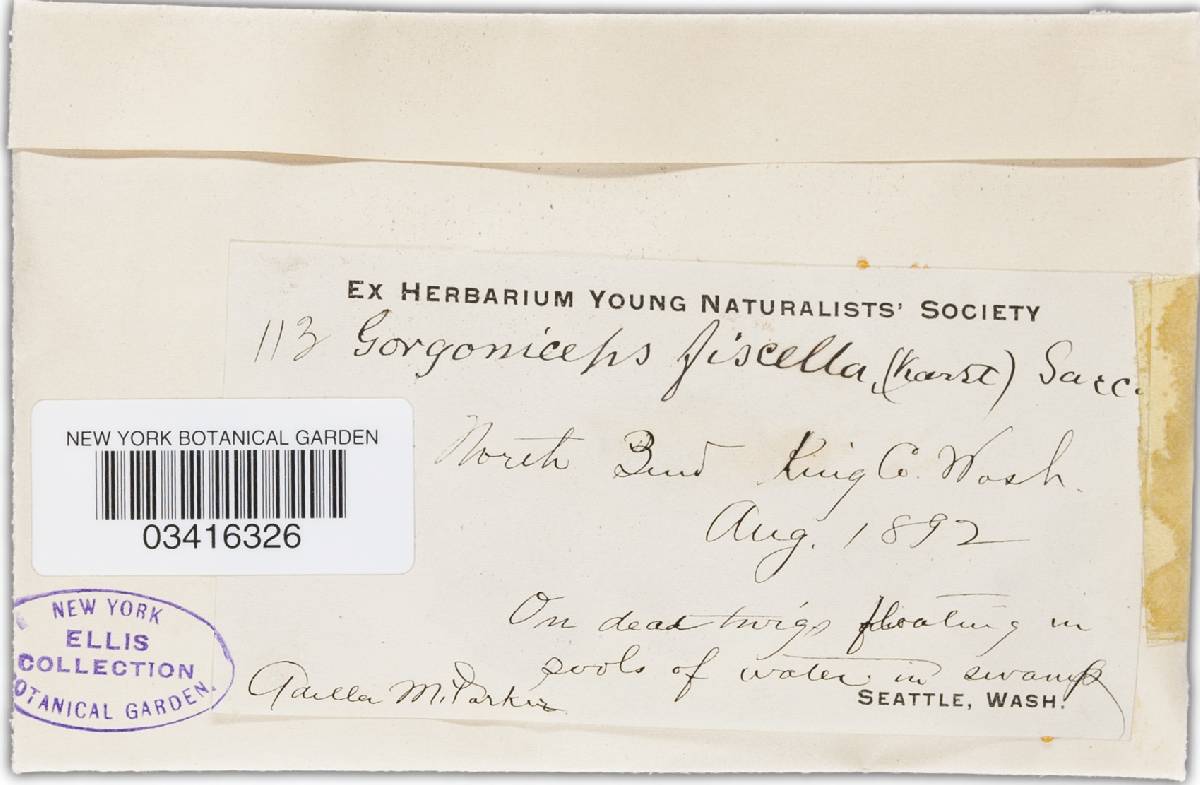 EX HERBARIUM YOUNG NATURALISTS' SOCIETY
113 Gorgoniceps fiscella, (Karst) Sacc.
North Bend King Co. Wash.
Aug. 1892
On dead twigs floating in
pools of water in swamp
Adella M. Parker
SEATTLE, WASH.
NEW YORK BOTANICAL GARDEN
03416326
NEW YORK
ELLIS
COLLECTION
BOTANICAL GARDEN.